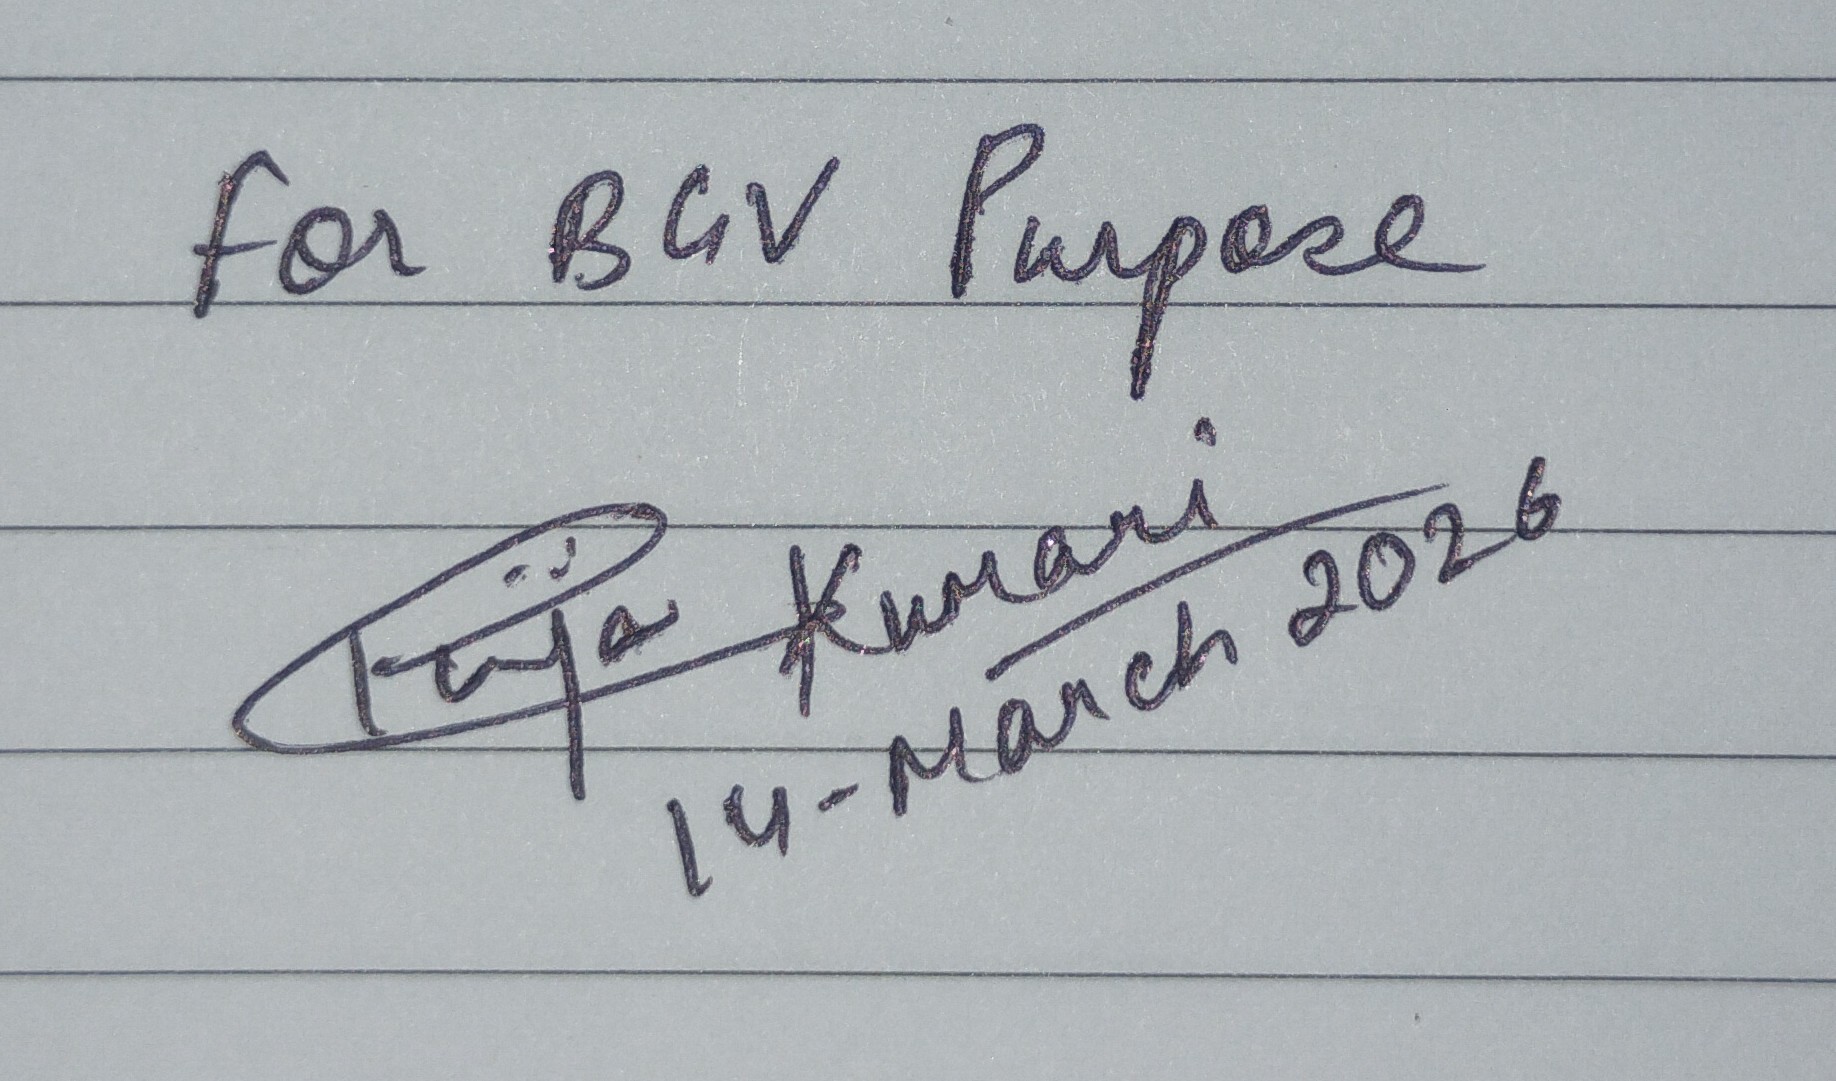 For BGV Purpose
Puja Kumari
14-March 2026